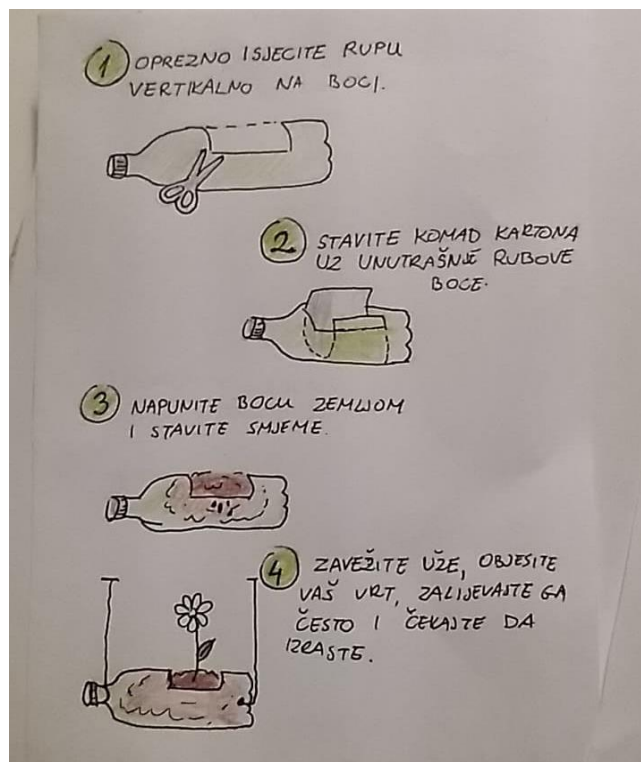 1 OPREZNO ISJECITE RUPU
VERTIKALNO NA BOCI.
2 STAVITE KOMAD KARTONA
UZ UNUTRAŠNJE RUBOVE
BOCE.
3 NAPUNITE BOCU ZEMLJOM
I STAVITE SMJEME.
4 ZAVEŽITE UŽE, OBJESITE
VAŠ VRT, ZALIJEVAJTE GA
ČESTO I ČEKAJTE DA
IZRASTE.